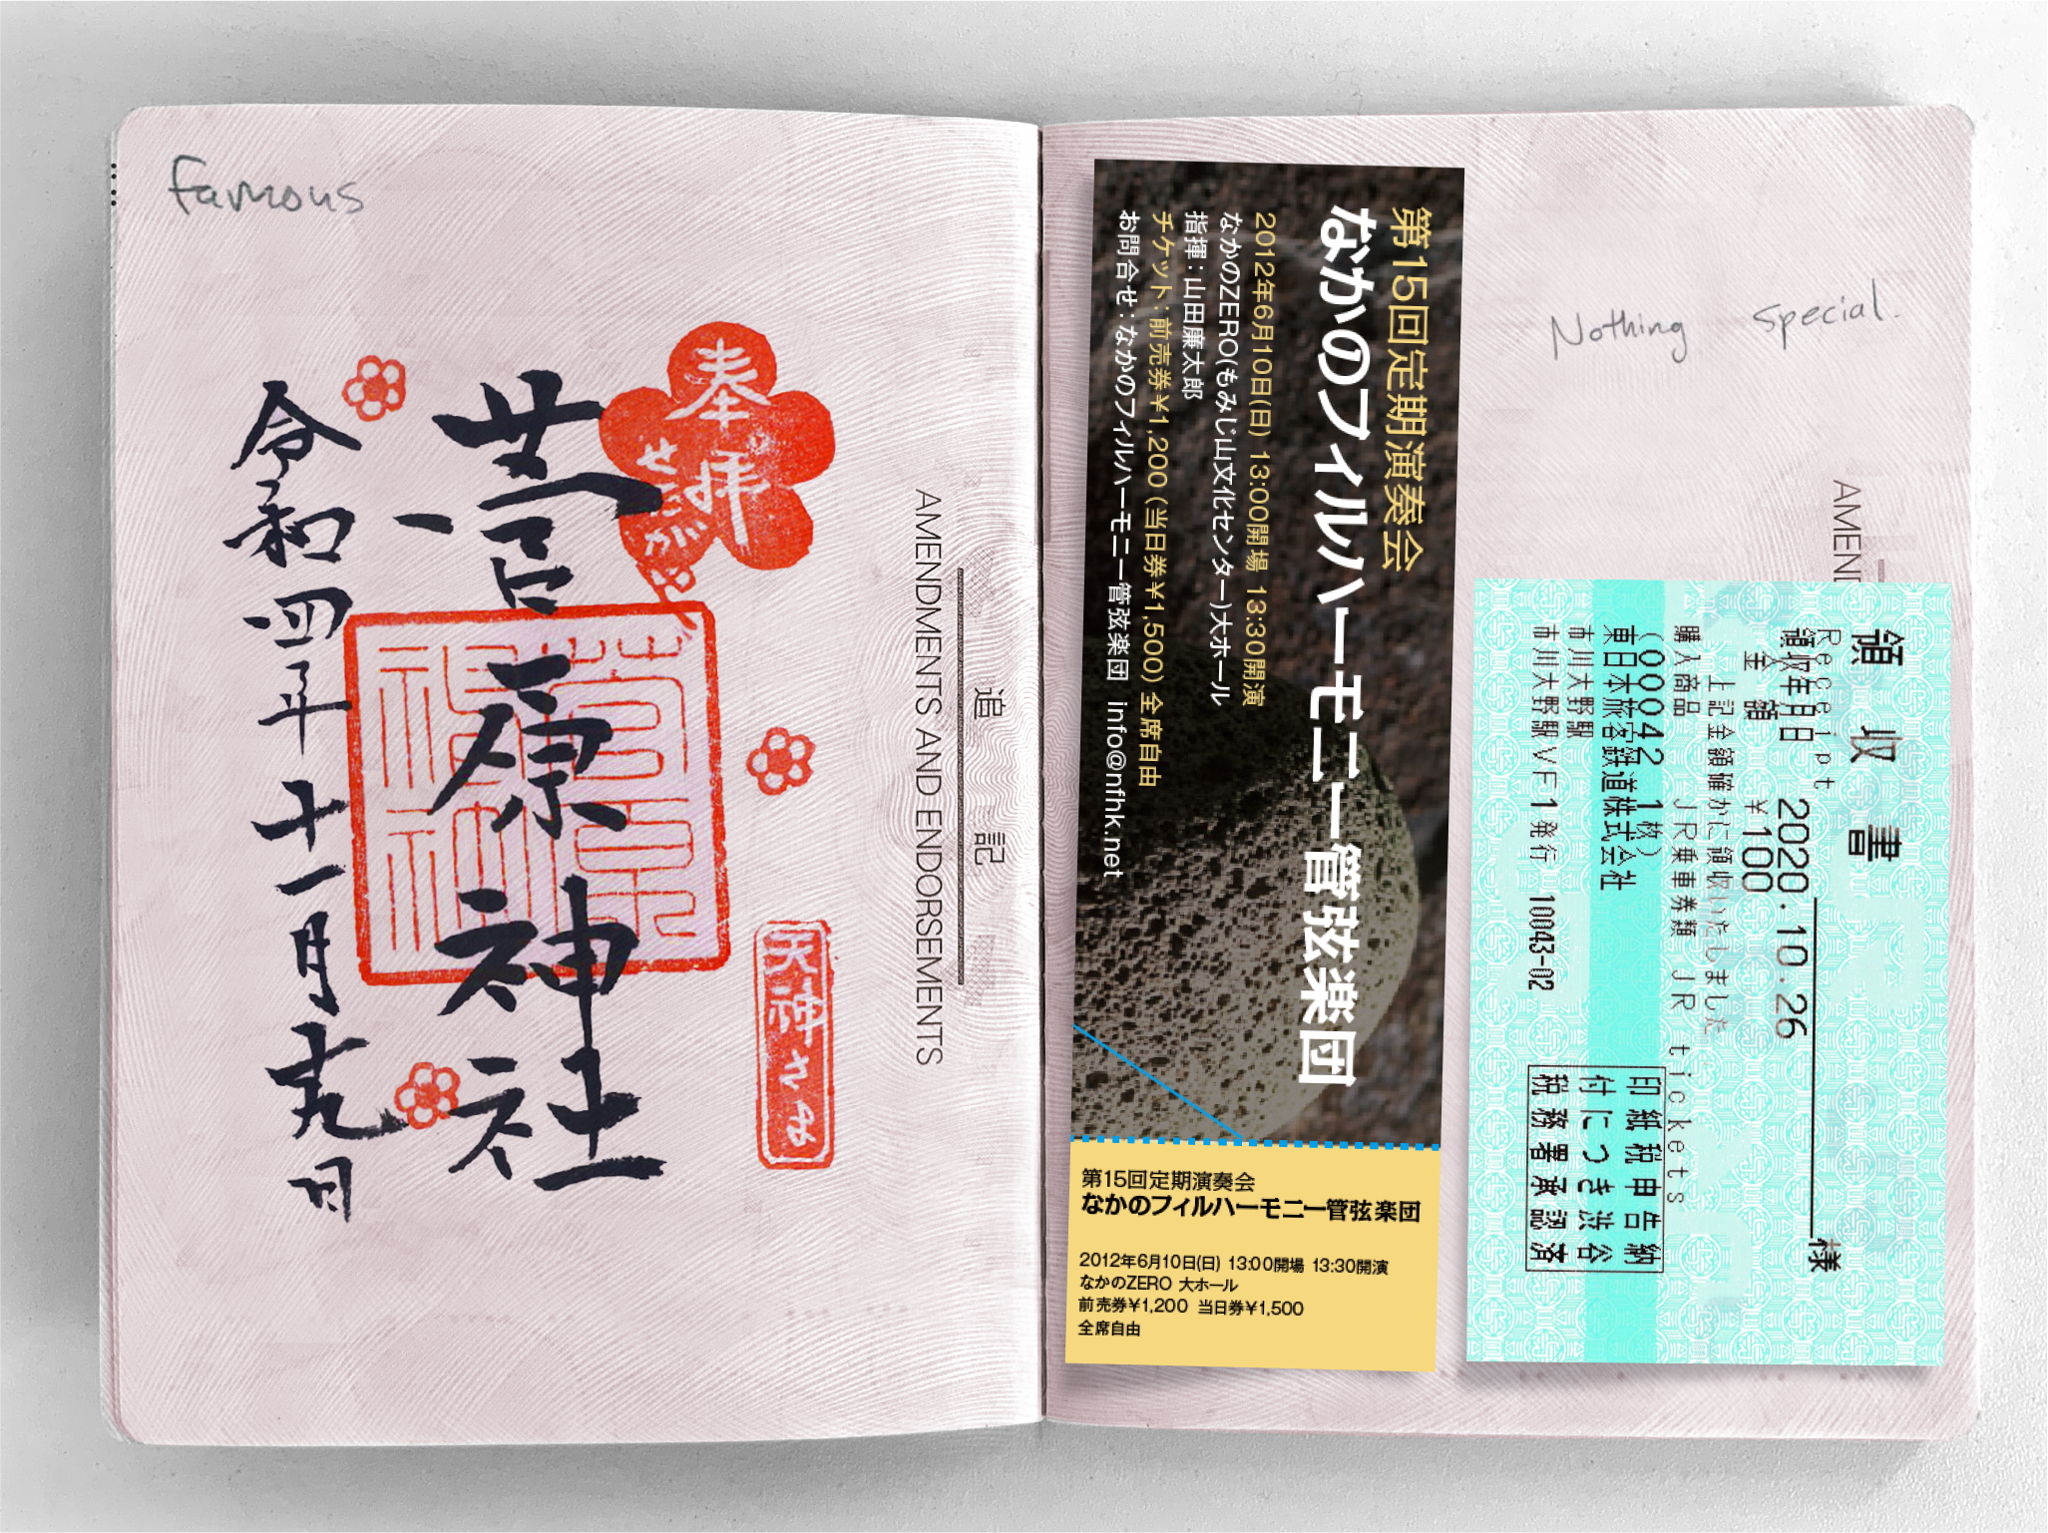 Famous
奉拝
せきがはら
菅原神社
令和四年十一月十九日
天神さま
追記
AMENDMENTS AND ENDORSEMENTS
第15回定期演奏会
なかのフィルハーモニー管弦楽団
2012年6月10日(日) 13:00開場 13:30開演
なかのZERO(もみじ山文化センター)大ホール
指揮:山田廉太郎
チケット:前売券¥1,200 (当日券¥1,500) 全席自由
お問合せ:なかのフィルハーモニー管弦楽団 info@nfhk.net
第15回定期演奏会
なかのフィルハーモニー管弦楽団
2012年6月10日(日) 13:00開場 13:30開演
なかのZERO 大ホール
前売券¥1,200 当日券¥1,500
全席自由
Nothing special.
AMEN
領収書
Receipt
様
領収年月日 2020.10.26
金額 ¥100
上記金額確かに領収いたしました
購入商品 JR乗車券類 JR tickets
(00042 1枚)
東日本旅客鉄道株式会社
市川大野駅
市川大野駅VF1発行 10043-02
印紙税申告納
付につき渋谷
税務署承認済